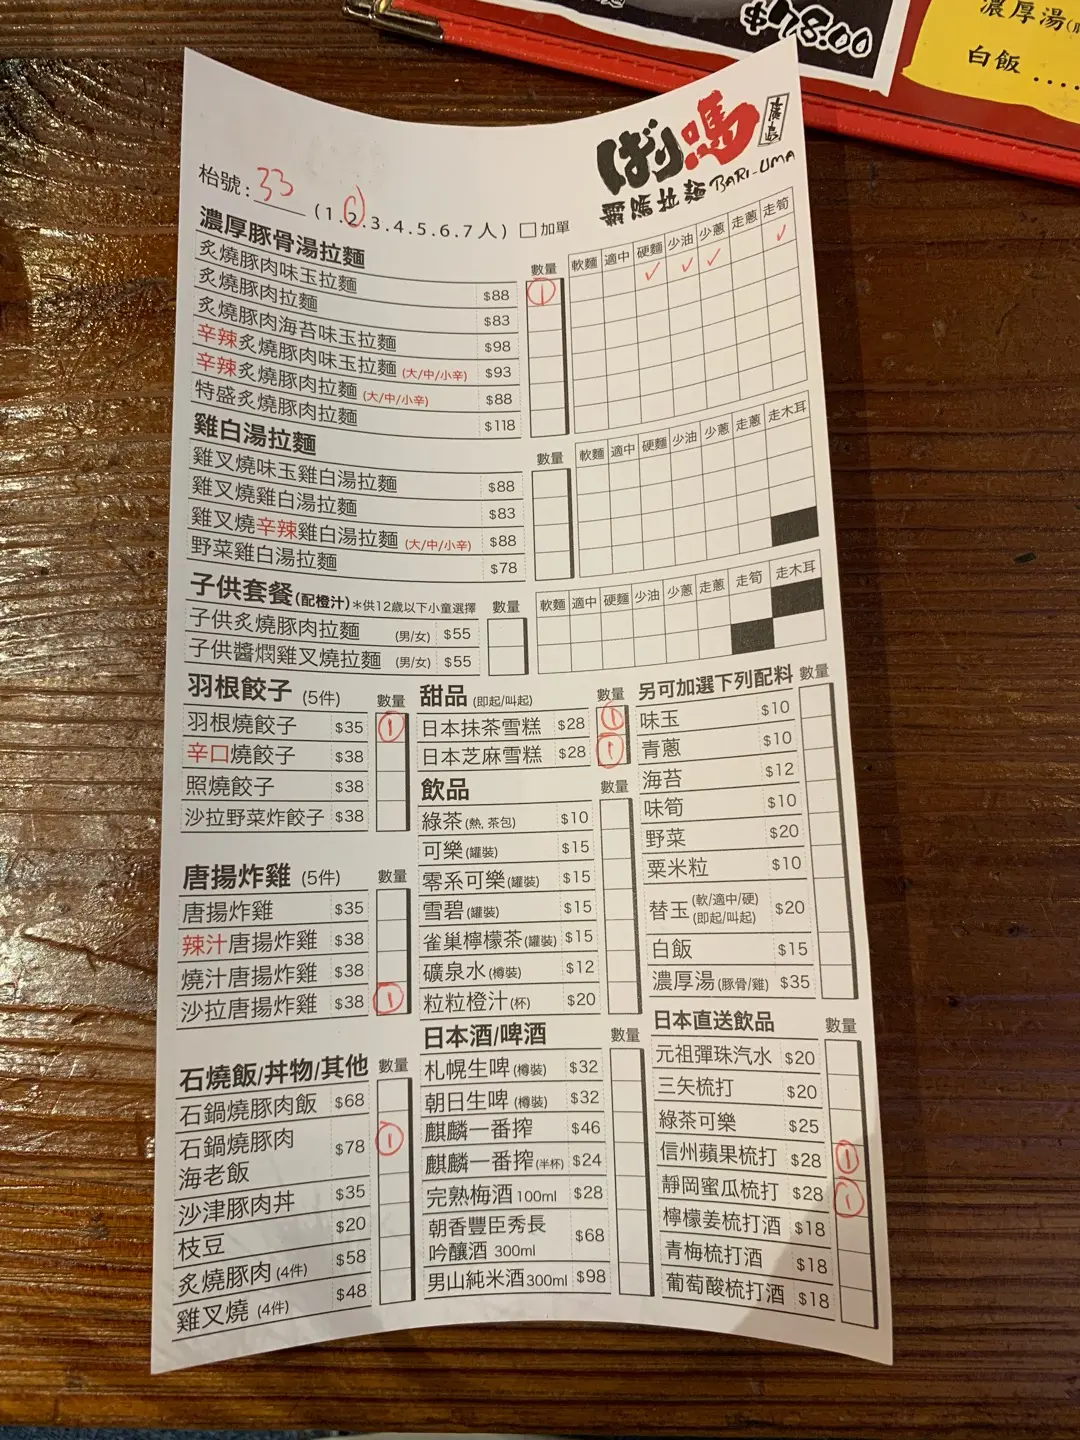 $78.00
濃厚湯
白飯 ....
ばり嗎
廣島
霸嗎拉麵 BARI-UMA
枱號: 33 (1.2.3.4.5.6.7人) □加單
濃厚豚骨湯拉麵 數量 軟麵 適中 硬麵 少油 少蔥 走蔥 走筍
炙燒豚肉味玉拉麵 $88 1 ✓ ✓ ✓ ✓
炙燒豚肉拉麵 $83
炙燒豚肉海苔味玉拉麵 $98
辛辣炙燒豚肉味玉拉麵 (大/中/小辛) $93
辛辣炙燒豚肉拉麵 (大/中/小辛) $88
特盛炙燒豚肉拉麵 $118
雞白湯拉麵 數量 軟麵 適中 硬麵 少油 少蔥 走蔥 走木耳
雞叉燒味玉雞白湯拉麵 $88
雞叉燒雞白湯拉麵 $83
雞叉燒辛辣雞白湯拉麵 (大/中/小辛) $88
野菜雞白湯拉麵 $78
子供套餐(配橙汁) *供12歲以下小童選擇 數量 軟麵 適中 硬麵 少油 少蔥 走蔥 走筍 走木耳
子供炙燒豚肉拉麵 (男/女) $55
子供醬燜雞叉燒拉麵 (男/女) $55
羽根餃子 (5件) 數量
羽根燒餃子 $35 1
辛口燒餃子 $38
照燒餃子 $38
沙拉野菜炸餃子 $38
唐揚炸雞 (5件) 數量
唐揚炸雞 $35
辣汁唐揚炸雞 $38
燒汁唐揚炸雞 $38
沙拉唐揚炸雞 $38 1
石燒飯/丼物/其他 數量
石鍋燒豚肉飯 $68
石鍋燒豚肉
海老飯 $78 1
沙津豚肉丼 $35
枝豆 $20
炙燒豚肉 (4件) $58
雞叉燒 (4件) $48
甜品 (即起/叫起) 數量
日本抹茶雪糕 $28 1
日本芝麻雪糕 $28 1
飲品 數量
綠茶 (熱, 茶包) $10
可樂 (罐裝) $15
零系可樂 (罐裝) $15
雪碧 (罐裝) $15
雀巢檸檬茶 (罐裝) $15
礦泉水 (樽裝) $12
粒粒橙汁 (杯) $20
日本酒/啤酒 數量
札幌生啤 (樽裝) $32
朝日生啤 (樽裝) $32
麒麟一番搾 $46
麒麟一番搾 (半杯) $24
完熟梅酒 100ml $28
朝香豐臣秀長
吟釀酒 300ml $68
男山純米酒 300ml $98
另可加選下列配料 數量
味玉 $10
青蔥 $10
海苔 $12
味筍 $10
野菜 $20
粟米粒 $10
替玉 (軟/適中/硬) (即起/叫起) $20
白飯 $15
濃厚湯 (豚骨/雞) $35
日本直送飲品 數量
元祖彈珠汽水 $20
三矢梳打 $20
綠茶可樂 $25
信州蘋果梳打 $28 1
靜岡蜜瓜梳打 $28 1
檸檬姜梳打酒 $18
青梅梳打酒 $18
葡萄酸梳打酒 $18